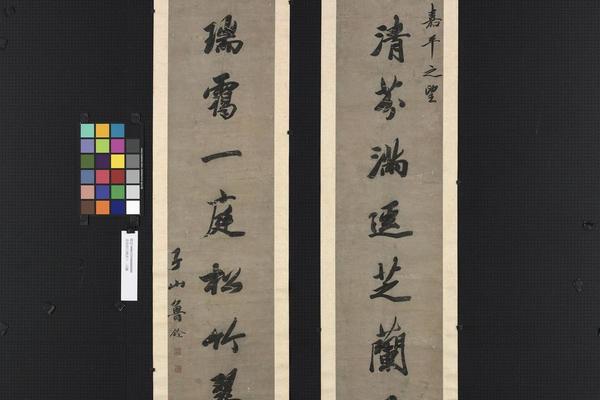 嘉平之望
清芬滿逕芝蘭
瑞靄一庭松竹翠
子山魯銓